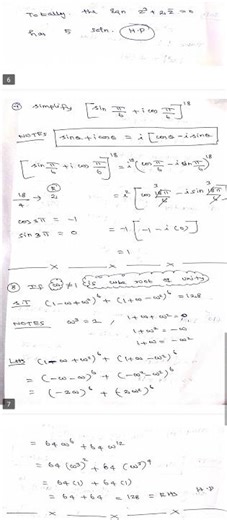 Totally the eqn z³ + 2z̄ = 0
has 5 soln. H.P
6
⑦ Simplify [sin π/6 + i cos π/6]¹⁸
NOTES sinθ + i cosθ = i [cosθ - i sinθ]
[sin π/6 + i cos π/6]¹⁸ = i¹⁸ (cos π/6 - i sin π/6)¹⁸
18/4 → 2 = i² [cos 18π/6 - i sin 18π/6]
cos 3π = -1
sin 3π = 0 = -1 [-1 - i(0)]
= 1
x x x
⑧ If ω ≠ 1 is cube root of unity
S.T (1 - ω + ω²)⁶ + (1 + ω - ω²)⁶ = 128
NOTES ω³ = 1, 1 + ω + ω² = 0
1 + ω² = -ω
1 + ω = -ω²
LHS (1 - ω + ω²)⁶ + (1 + ω - ω²)⁶
= (-ω - ω)⁶ + (-ω² - ω²)⁶
= (-2ω)⁶ + (-2ω²)⁶
7
= 64 ω⁶ + 64 ω¹²
= 64 (ω³)² + 64 (ω³)⁴
= 64 (1) + 64 (1)
= 64 + 64 = 128 = RHS H.P
x x x